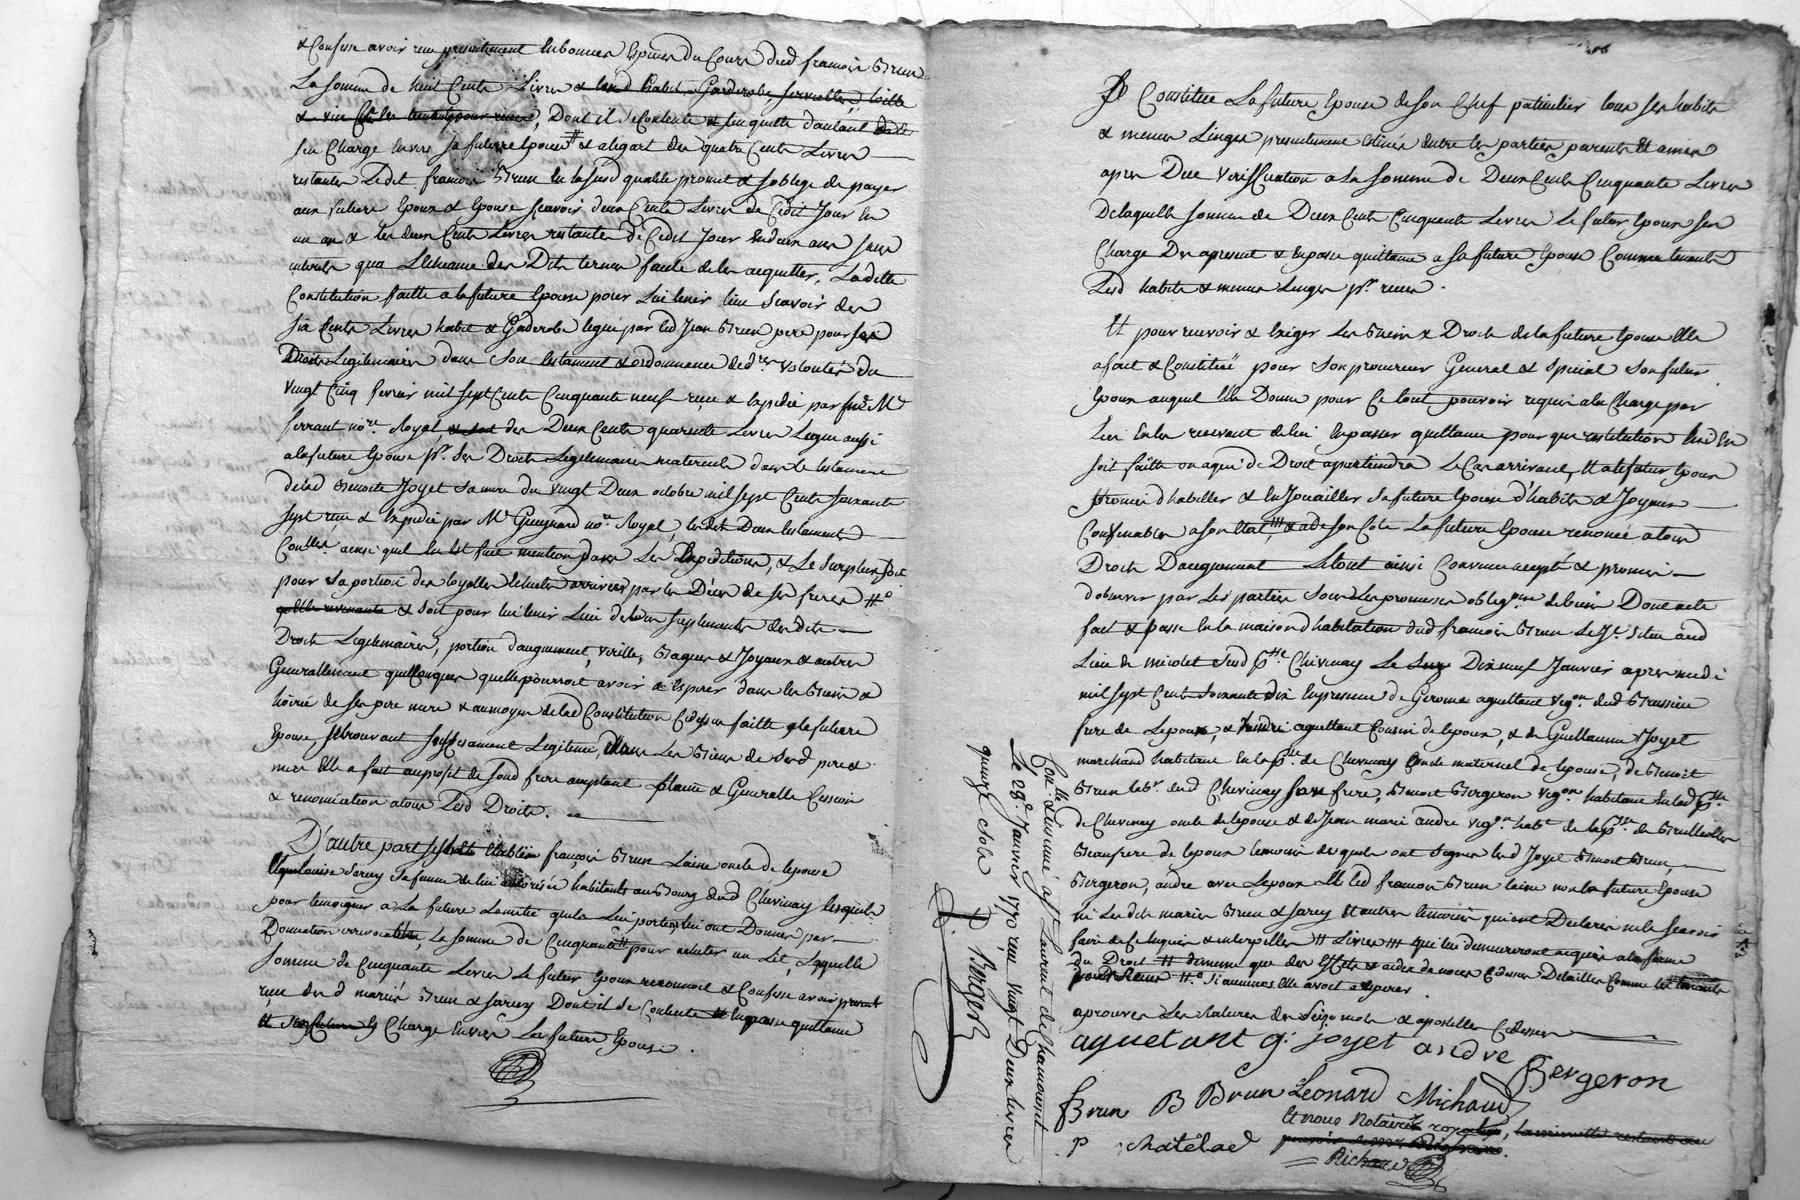 & Confesse avoir reçu presentement en bonnes Espèces du Cours dud françois Brun
La somme de huit Cents Livres & lesd habits, Garderobe, serviettes, toille
Dont il se Contente & en quitte d'autant
sen Charge envers sa future Epouse # & a legart des quatre Cents Livres
restantes Ledit françois Brun en la susd qualité promet & soblege de payer
aux future Epoux & Epouse sçavoir deux Cents Livres de Cedit Jour en
un an & les deux Cents Livres restantes de Cedit Jour en deux ans sans
interets qua L'Echeance des Dits termes faute de les acquitter, Ladite
Constitution faitte a la future Epouse pour Lui tenir lieu scavoir des
six Cents Livres habit & Garderobe legué par led Jean Brun pere pour ses
Droits Legitimaires dans son testament & ordonnance de dres volontés du
vingt Cinq fevrier mil sept Cents Cinquante neuf reçu & Expedié par feu Me
ferrant nore Royal, des Deux Cents quarante Livres Legué aussi
a la future Epouse pr. ses Droits Legitimaires maternels dans le testament
de lad Benoite Joyet sa mere du vingt Deux octobre mil sept Cents soixante
sept reçu & Expedié par Me Guignard nore Royal, lesdits Deux testaments
Conllés ainsi quil en Est fait mention dans Les Expeditions, & Le surplus soit
pour sa portion des loyalles Echutes arrivées par les Déces de ses freres #o
& soit pour lui tenir Lieu de tous suplements desdits
Droits Legitimaires, portion d'augment, virille, Bagues & Joyaux & autres
Generallement quelConques quelle pourroit avoir & Esperer dans les Biens &
hoirie de ses pere mere & au moyen de lad Constitution Cidessus faitte a la future
Epouse, se trouvant suffisament Legitimée, Dans Les Biens de sesd pere &
mere Elle a fait au profit de sond frere acceptant plaine & Generalle Cession
& renonciation a tous Sesd Droits.
D'autre part se sont Etablis françois Brun Laine oncle de lepouse
& Louise Sarcey sa femme de lui autorisée habitants au Bourg dud Chevinay lesquels
pour temoigner a La future Lamitié quils Lui portent, lui ont Donnés par
Donnation irrevocable La somme de Cinquante # pour acheter un Lit, Laquelle
somme de Cinquante Livres Le futur Epoux reconnoit & Confesse avoir presentt
reçue desd mariés Brun & sarcey Dont il se Contente En passe quittance
& Charge Envers La future Epouse.
Conllé Linsinué a St Laurent de Chamousset
Le 28e Janvier 1770 reçu vingt Deux livres
quinze sols
D. Berger
Se Constitue La future Epouse de son Chef particulier tous ses habits
& menus Linges presentement Estimés entre les parties parents & amis
apres Due verification a la somme de Deux Cents Cinquante Livres
De laquelle somme de Deux Cents Cinquante Livres Le futur Epoux sen
Charge Des apresent & En passe quittance a sa future Epouse Comme tenant
Lesd habits & menus Linges pr. reçus.
Et pour recevoir & Exiger Les Biens & Droits de la future Epouse Elle
a fait & Constitué pour son procureur General & special son futur
Epoux auquel Elle Donne pour Ce tout pouvoir requis a la Charge par
Lui En les recevant de lui En passer quittance pour que restitution En
soit faitte ou a qui de Droit appartiendra Le Cas arrivant, Et a le futur Epoux
promis d'habiller & En Jouailler sa future Epouse d'habits & Joyaux
Convenables a son Etat, ### & a de son Coté La future Epouse renoncé a tous
Droits Daugment Le tout ainsi Convenu accepté & promis
d'observer par Les parties sous Les promesses obligons de biens Dont acte
fait & passé En la maison d'habitation dud françois Brun Le Je. située aud
Lieu de micolet susd psse Chevinay Le Dix neuf Janvier apres midi
mil sept Cents soixante dix En presence de Gerome aquettant vigon dud Brussieu
frere de Lepoux, & aquettant Cousin de lepoux, & de Guillaume Joyet
marchand habitant En la psse de Chevinay oncle maternel de lepouse, de Benoit
Brun labr. dud Chevinay son frere, Benoit Bergeron vigon habitant En lad psse
de Chevinay oncle de lepouse & de Jean marie andre vigon habt de la psse de Brullioles
Beaufrere de lepoux temoins desquels ont signés led Joyet Benoit Brun,
Bergeron, andre avec Lepoux Et led françois Brun laine non la future Epouse
ni Les dits mariés Brun & sarcey Et autres temoins qui ont Declarés ne le scavoir
faire de Ce Enquis & interpellés # Livres ### qui lui demeureront acquis a la forme
du Droit # demeure que des Effets & aider de nous Cidessus Detaillés Comme
#o si aucunes Elle avoit a Esperer
aprouvés Les ratures de seize mots & apostilles Cidessus
aquetant g: joyet andre
Bergeron
Brun B Brun Leonard Michaud
P chatelad
Et nous Notaires royaux,
Richard